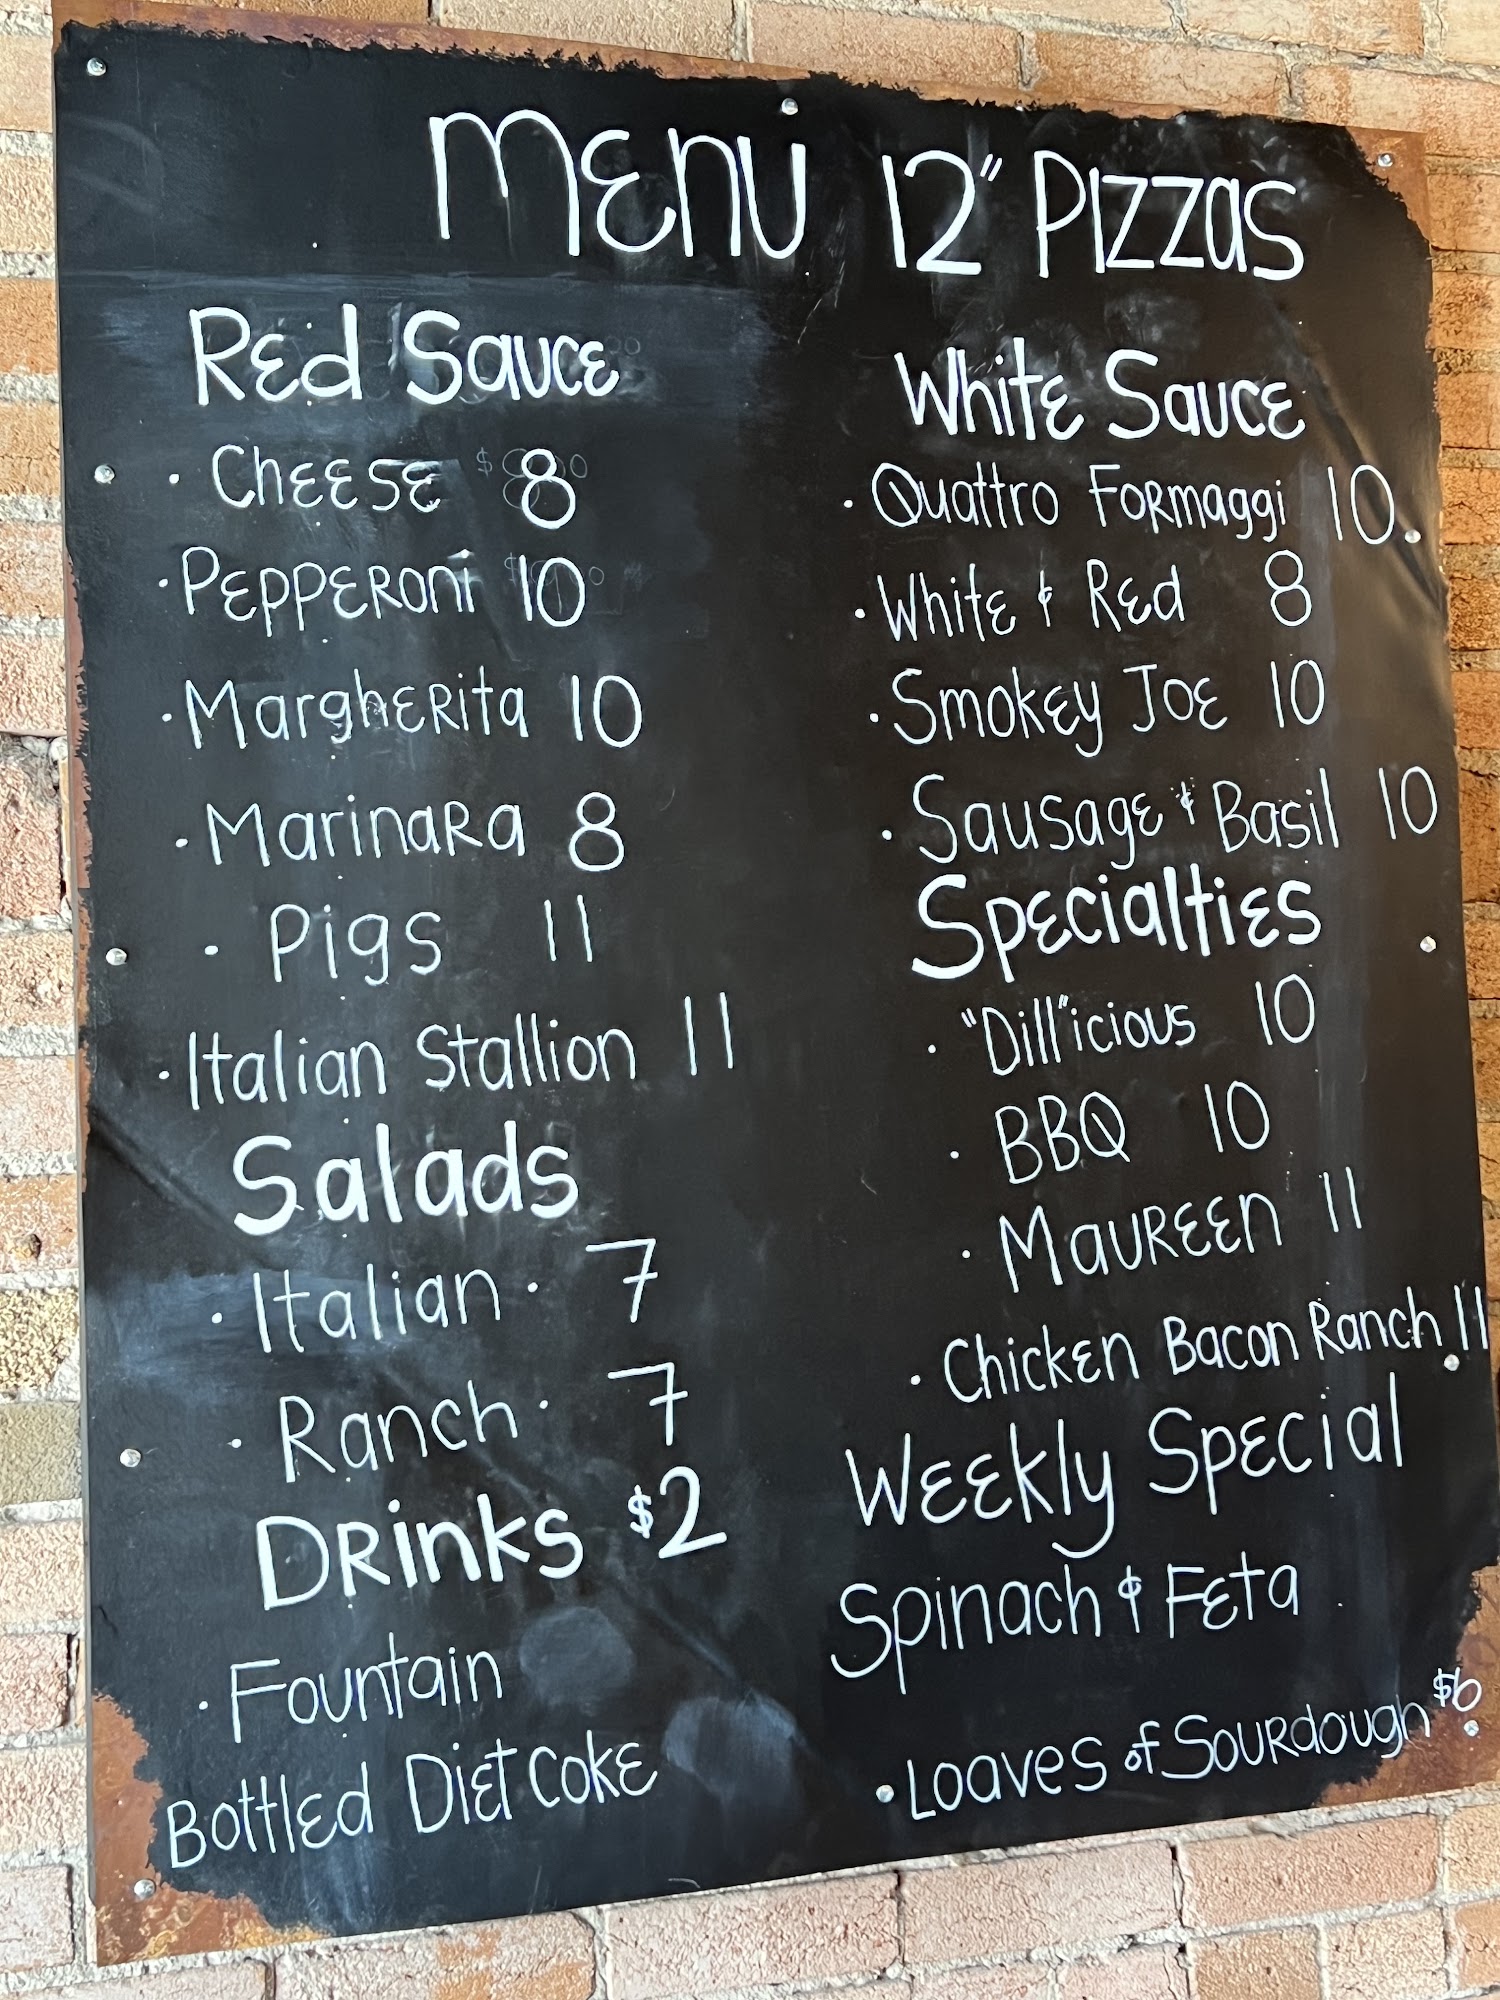 Menu 12" Pizzas
Red Sauce
· Cheese 8
· Pepperoni 10
· Margherita 10
· Marinara 8
· Pigs 11
· Italian Stallion 11
Salads
· Italian · 7
· Ranch · 7
Drinks $2
· Fountain
Bottled Diet Coke
White Sauce
· Quattro Formaggi 10
· White & Red 8
· Smokey Joe 10
· Sausage & Basil 10
Specialties
· "Dill"icious 10
· BBQ 10
· Maureen 11
· Chicken Bacon Ranch 11
Weekly Special
Spinach & Feta
· Loaves of Sourdough $6